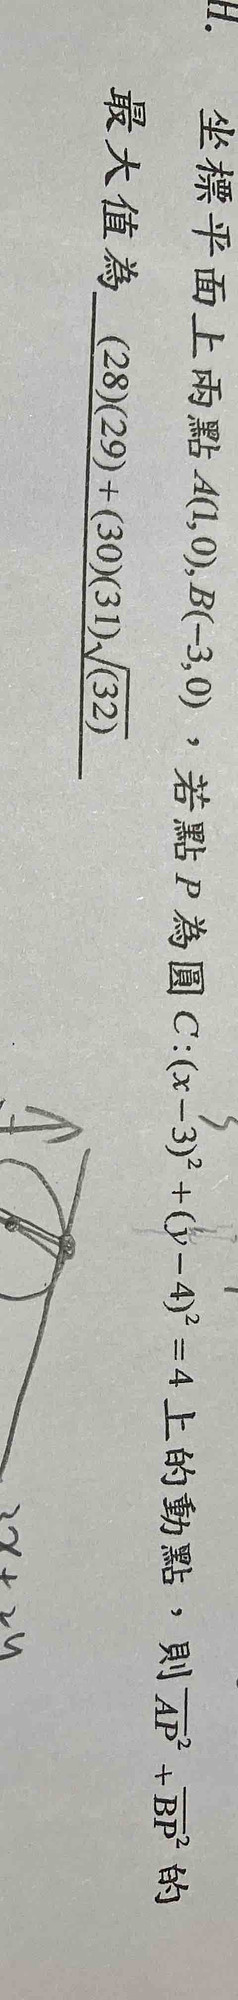 H. 坐標平面上兩點 A(1,0), B(−3,0)，若點 P 為圓 C:(x−3)²+(y−4)²=4 上的動點，則 AP²+BP² 的
最大值為 (28)(29)+(30)(31)√(32)